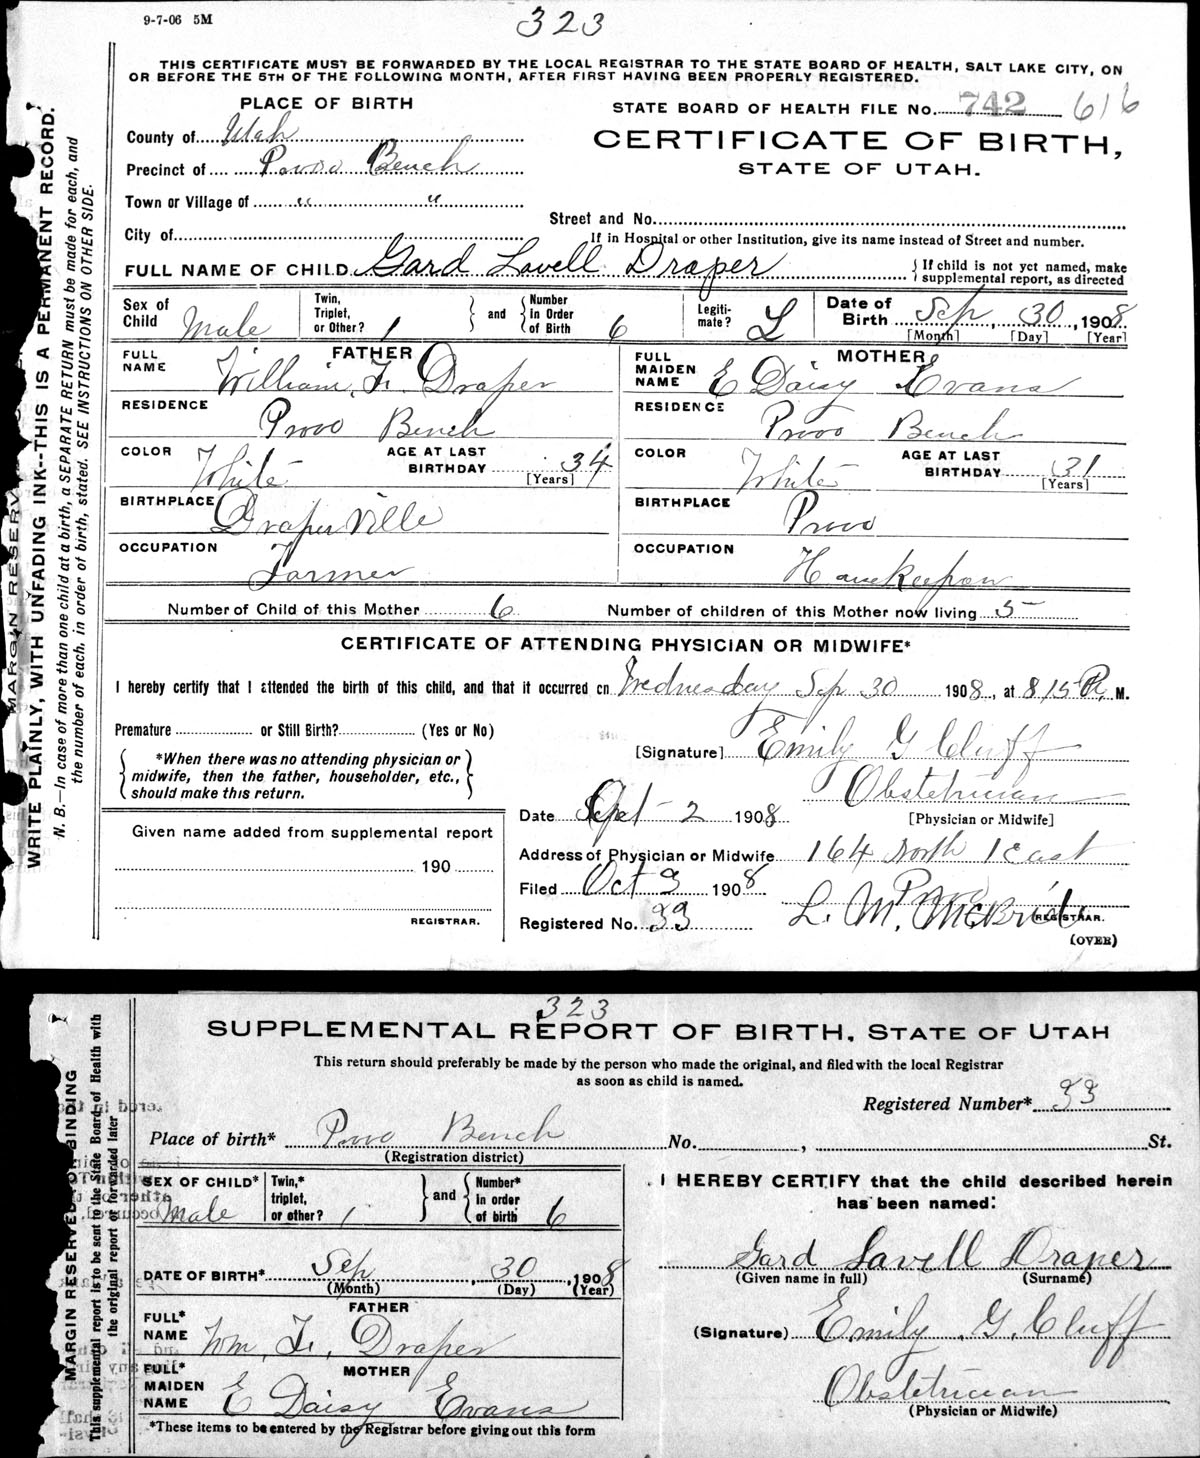 9-7-06 5M
323
THIS CERTIFICATE MUST BE FORWARDED BY THE LOCAL REGISTRAR TO THE STATE BOARD OF HEALTH, SALT LAKE CITY, ON
OR BEFORE THE 5TH OF THE FOLLOWING MONTH, AFTER FIRST HAVING BEEN PROPERLY REGISTERED.
PLACE OF BIRTH
STATE BOARD OF HEALTH FILE No. 742 616
County of Utah
CERTIFICATE OF BIRTH,
Precinct of Provo Bench
STATE OF UTAH.
Town or Village of " "
Street and No.
City of
If in Hospital or other Institution, give its name instead of Street and number.
FULL NAME OF CHILD Gard Lavell Draper { If child is not yet named, make supplemental report, as directed
Sex of Child Male
Twin, Triplet, or Other? 1 } and { Number in Order of Birth 6
Legiti-mate? L
Date of Birth Sep, 30, 1908
[Month] [Day] [Year]
FATHER
FULL NAME William F. Draper
RESIDENCE Provo Bench
COLOR White AGE AT LAST BIRTHDAY 34 [Years]
BIRTHPLACE Draperville
OCCUPATION Farmer
MOTHER
FULL MAIDEN NAME E Daisy Evans
RESIDENCE Provo Bench
COLOR White AGE AT LAST BIRTHDAY 31 [Years]
BIRTHPLACE Provo
OCCUPATION Housekeeper
Number of Child of this Mother 6 Number of children of this Mother now living 5
CERTIFICATE OF ATTENDING PHYSICIAN OR MIDWIFE*
I hereby certify that I attended the birth of this child, and that it occurred on Wednesday Sep 30 1908, at 815 P. M.
Premature or Still Birth? (Yes or No)
*When there was no attending physician or
midwife, then the father, householder, etc.,
should make this return.
[Signature] Emily G Cluff
Obstetrician
[Physician or Midwife]
Date 2 1908
Given name added from supplemental report
190
REGISTRAR.
Address of Physician or Midwife 164 North 1 East
Provo
Filed Oct 3 1908
Registered No. 33
L. M. McBride
REGISTRAR.
(OVER)
MARGIN RESERV
WRITE PLAINLY, WITH UNFADING INK--THIS IS A PERMANENT RECORD.
N. B.—In case of more than one child at a birth, a SEPARATE RETURN must be made for each, and
the number of each, in order of birth, stated. SEE INSTRUCTIONS ON OTHER SIDE.
323
SUPPLEMENTAL REPORT OF BIRTH, STATE OF UTAH
This return should preferably be made by the person who made the original, and filed with the local Registrar
as soon as child is named.
Registered Number* 33
Place of birth* Provo Bench No. , St.
(Registration district)
SEX OF CHILD* Male
Twin,* triplet, or other? 1 } and { Number* in order of birth 6
DATE OF BIRTH* Sep, 30, 1908
(Month) (Day) (Year)
FATHER
FULL* NAME Wm. F. Draper
MOTHER
FULL* MAIDEN NAME E Daisy Evans
*These items to be entered by the Registrar before giving out this form
I HEREBY CERTIFY that the child described herein
has been named:
Gard Lavell Draper
(Given name in full) (Surname)
(Signature) Emily G. Cluff
Obstetrician
(Physician or Midwife)
MARGIN RESERVED FOR BINDING
This supplemental report is to be sent to the State Board of Health with
the original report or forwarded later